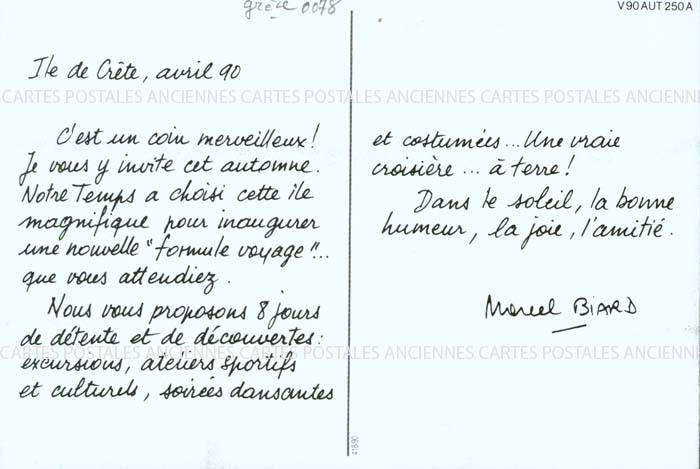 grèce 0078
V 90 AUT 250 A
Ile de Crète, avril 90
CARTES POSTALES ANCIENNES CARTES POSTALES ANCIENNES CARTES POSTALES ANCIEN
C'est un coin merveilleux!
Je vous y invite cet automne.
Notre Temps a choisi cette île
magnifique pour inaugurer
une nouvelle "formule voyage"...
que vous attendiez.
Nous vous proposons 8 jours
de détente et de découvertes:
CARTES POSTALES ANCIENNES CARTES POSTALES ANCIENNES CARTES POSTALES ANCIENN
excursions, ateliers sportifs
et culturels, soirées dansantes
et costumées... Une vraie
croisière... à terre!
Dans le soleil, la bonne
humeur, la joie, l'amitié.
Marcel BIARD
41890